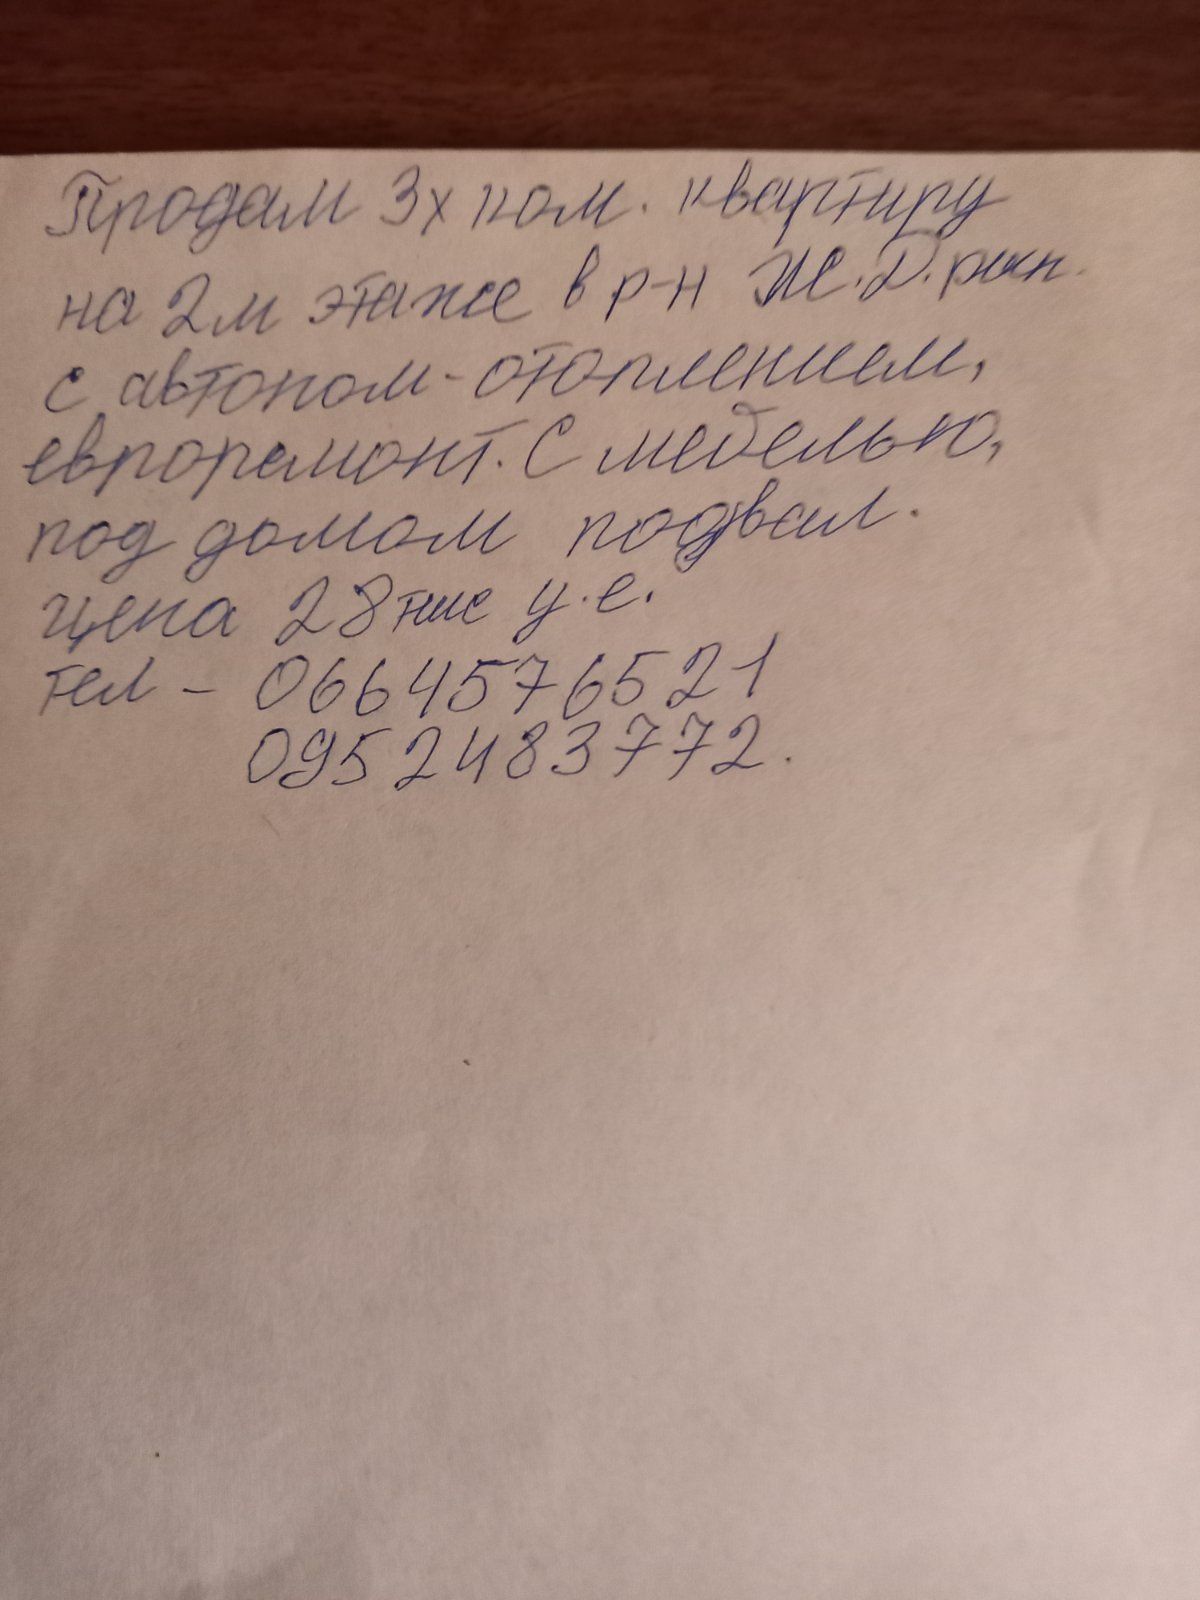 Продам 3х ком. квартиру
на 2м этаже в р-н Ж.Д. рын.
с автоном-отоплением,
евроремонт. С мебелью,
под домом подвал.
цена 28 тыс у.е.
тел - 0664576521
0952483772.